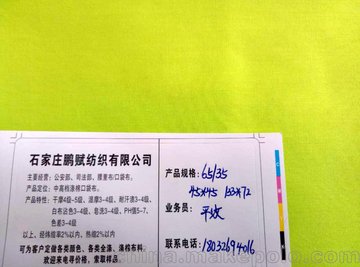 石家庄鹏赋纺织有限公司
主要经营：公安部、司法部、腰里布/口袋布。
产品定位：中高档涤棉口袋布。
产品特性：干摩4级-5级、湿摩3-4级、耐汗渍3-4级、
白布沾色3-4级、皂洗3-4级、PH值5-7、
色差3-4级
以上、经纬缩率2%以内、热缩2%以内
可为客户定做各类颜色、各类全涤、涤棉布料、
欢迎来电寻价格，索取样品。
产品规格：65/35
45×45 133×72
业务员：
联系电话：18032694016
中国制造交易网
www.makepolo.com